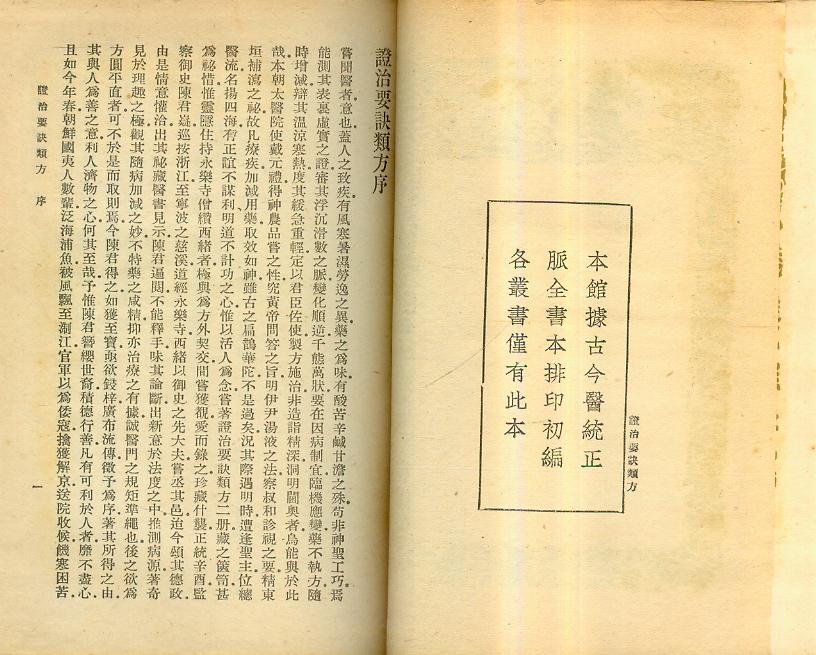 本館據古今醫統正
脈全書本排印初編
各叢書僅有此本
證治要訣類方
證治要訣類方序
嘗聞醫者意也蓋人之致疾有風寒暑濕勞逸之異藥之為味有酸苦辛鹹甘澹之殊苟非神聖工巧焉
能測其表裏虛實之證審其浮沉滑數之脈變化順逆千態萬狀要在因病制宜臨機應變藥不執方隨
時增減辯其溫涼寒熱度其緩急重輕定以君臣佐使製方施治非造詣精深洞明閫奧者烏能與於此
哉本朝太醫院使戴元禮得神農品嘗之性究黃帝問答之旨明伊尹湯液之法察叔和診視之要精東
垣補瀉之祕故凡療疾加減用藥取效如神雖古之扁鵲華陀不是過矣況其際遇明時遭逢聖主位總
醫流名揚四海有正誼不謀利明道不計功之心惟以活人為念嘗著證治要訣類方二册藏之篋笥甚
為祕惜惟靈隱住持永樂寺僧纘西緒者極與為方外契交間嘗獲觀愛而錄之珍藏什襲正統辛酉監
察御史陳君嶷巡按浙江至寧波之慈溪道經永樂寺西緒以御史之先大夫嘗丞其邑迨今頌其德政
由是情意懽洽出其祕藏醫書見示陳君遍閱不能釋手味其論斷出新意於法度之中推測病源著奇
見於理趣之極觀其隨病加減之妙不特藥之咸精抑亦治療之有據誠醫門之規矩準繩也後之欲為
方圓平直者可不於是而取則焉今陳君得之如獲至寶亟欲鋟梓廣布流傳徵予為序著其所得之由
其與人為善之意利人濟物之心何其至哉予惟陳君簪纓世裔積德行善凡有可利於人者靡不盡心
且如今年春朝鮮國夷人數輩泛海浦魚被風飄至浙江官軍以為倭寇擒獲解京送院收候饑寒困苦
證治要訣類方 序
一